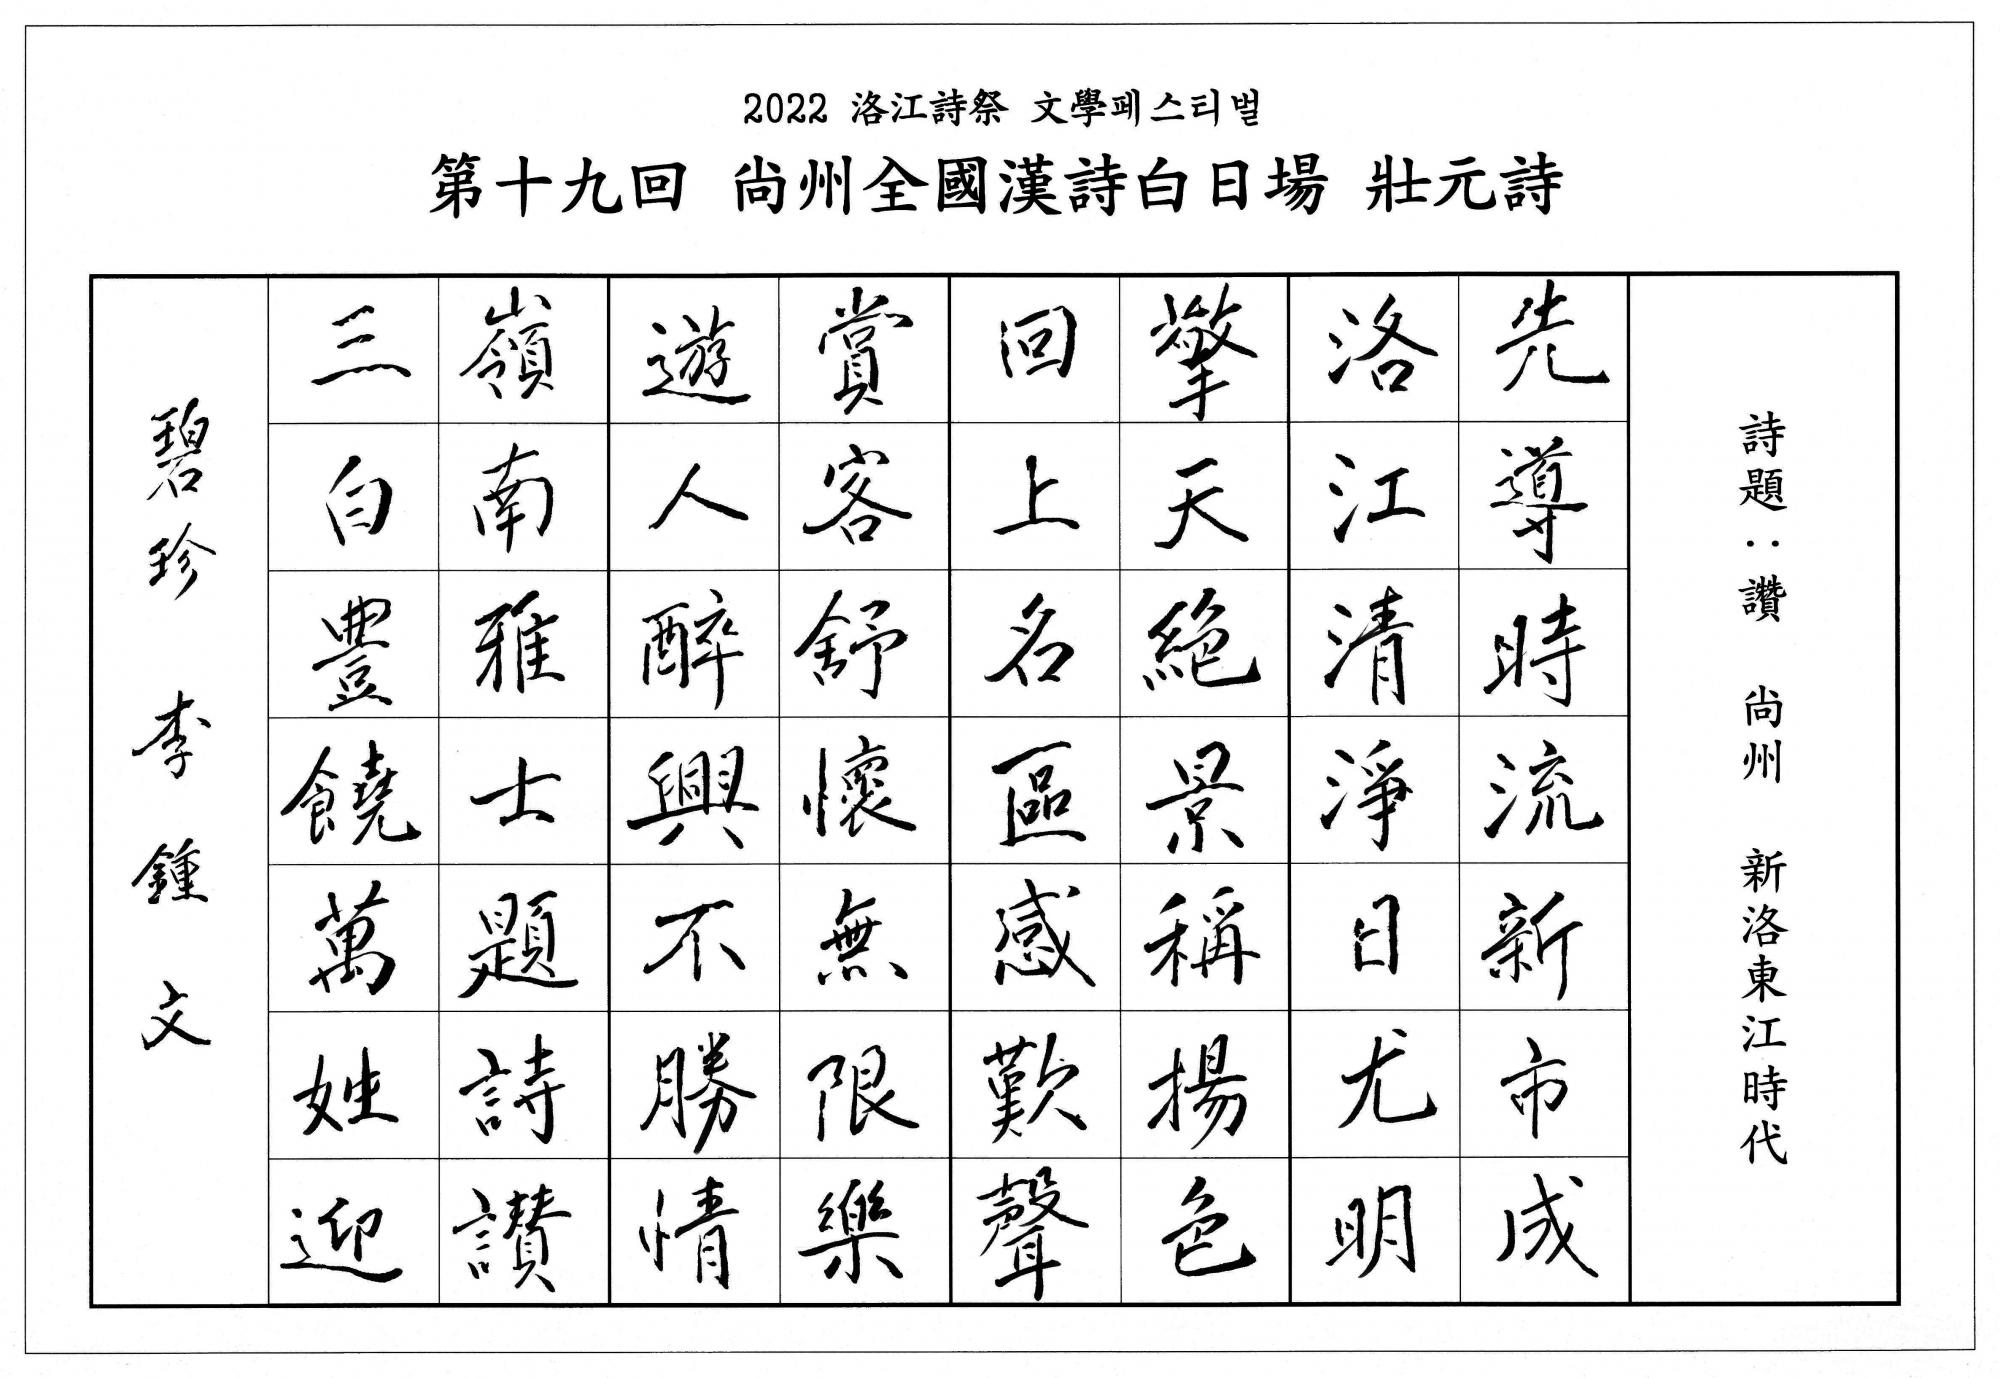 2022 洛江詩祭 文學페스티벌
第十九回 尙州全國漢詩白日場 壯元詩
詩題：讚 尙州 新洛東江時代
先導時流新市成
洛江清淨日尤明
擎天絶景稱揚色
回上名區感歎聲
賞客舒懷無限樂
遊人醉興不勝情
嶺南雅士題詩讚
三白豊饒萬姓迎
碧珍 李鍾文